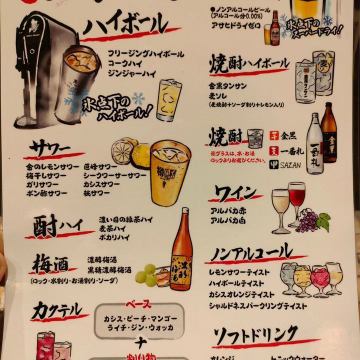 ハイボール
フリージングハイボール
コークハイ
ジンジャーハイ
氷点下の
ハイボール!
サワー
金のレモンサワー
梅干しサワー
ガリサワー
ポン酢サワー
巨峰サワー
シークワーサーサワー
カシスサワー
桃サワー
酎ハイ
濃い目の緑茶ハイ
麦茶ハイ
ポカリハイ
梅酒
濃醇梅酒
黒糖濃醇梅酒
(ロック・水割り・お湯割り・ソーダ)
カクテル
ベース
カシス・ピーチ・マンゴー
ライチ・ジン・ウォッカ
+
割り物
●ノンアルコールビール
(アルコール分0.00%)
アサヒドライゼロ
氷点下の
スーパードライ!
焼酎ハイボール
金黒タンサン
麦ソレ
(麦焼酎+ソーダ割り+レモン入り)
焼酎
※グラスは、水・お湯
ロックよりお選びください。
金黒
一番札
SAZAN
ワイン
アルパカ赤
アルパカ白
ノンアルコール
レモンサワーテイスト
ハイボールテイスト
カシスオレンジテイスト
シャルドネスパークリングテイスト
ソフトドリンク
オレンジ
トニックウォーター